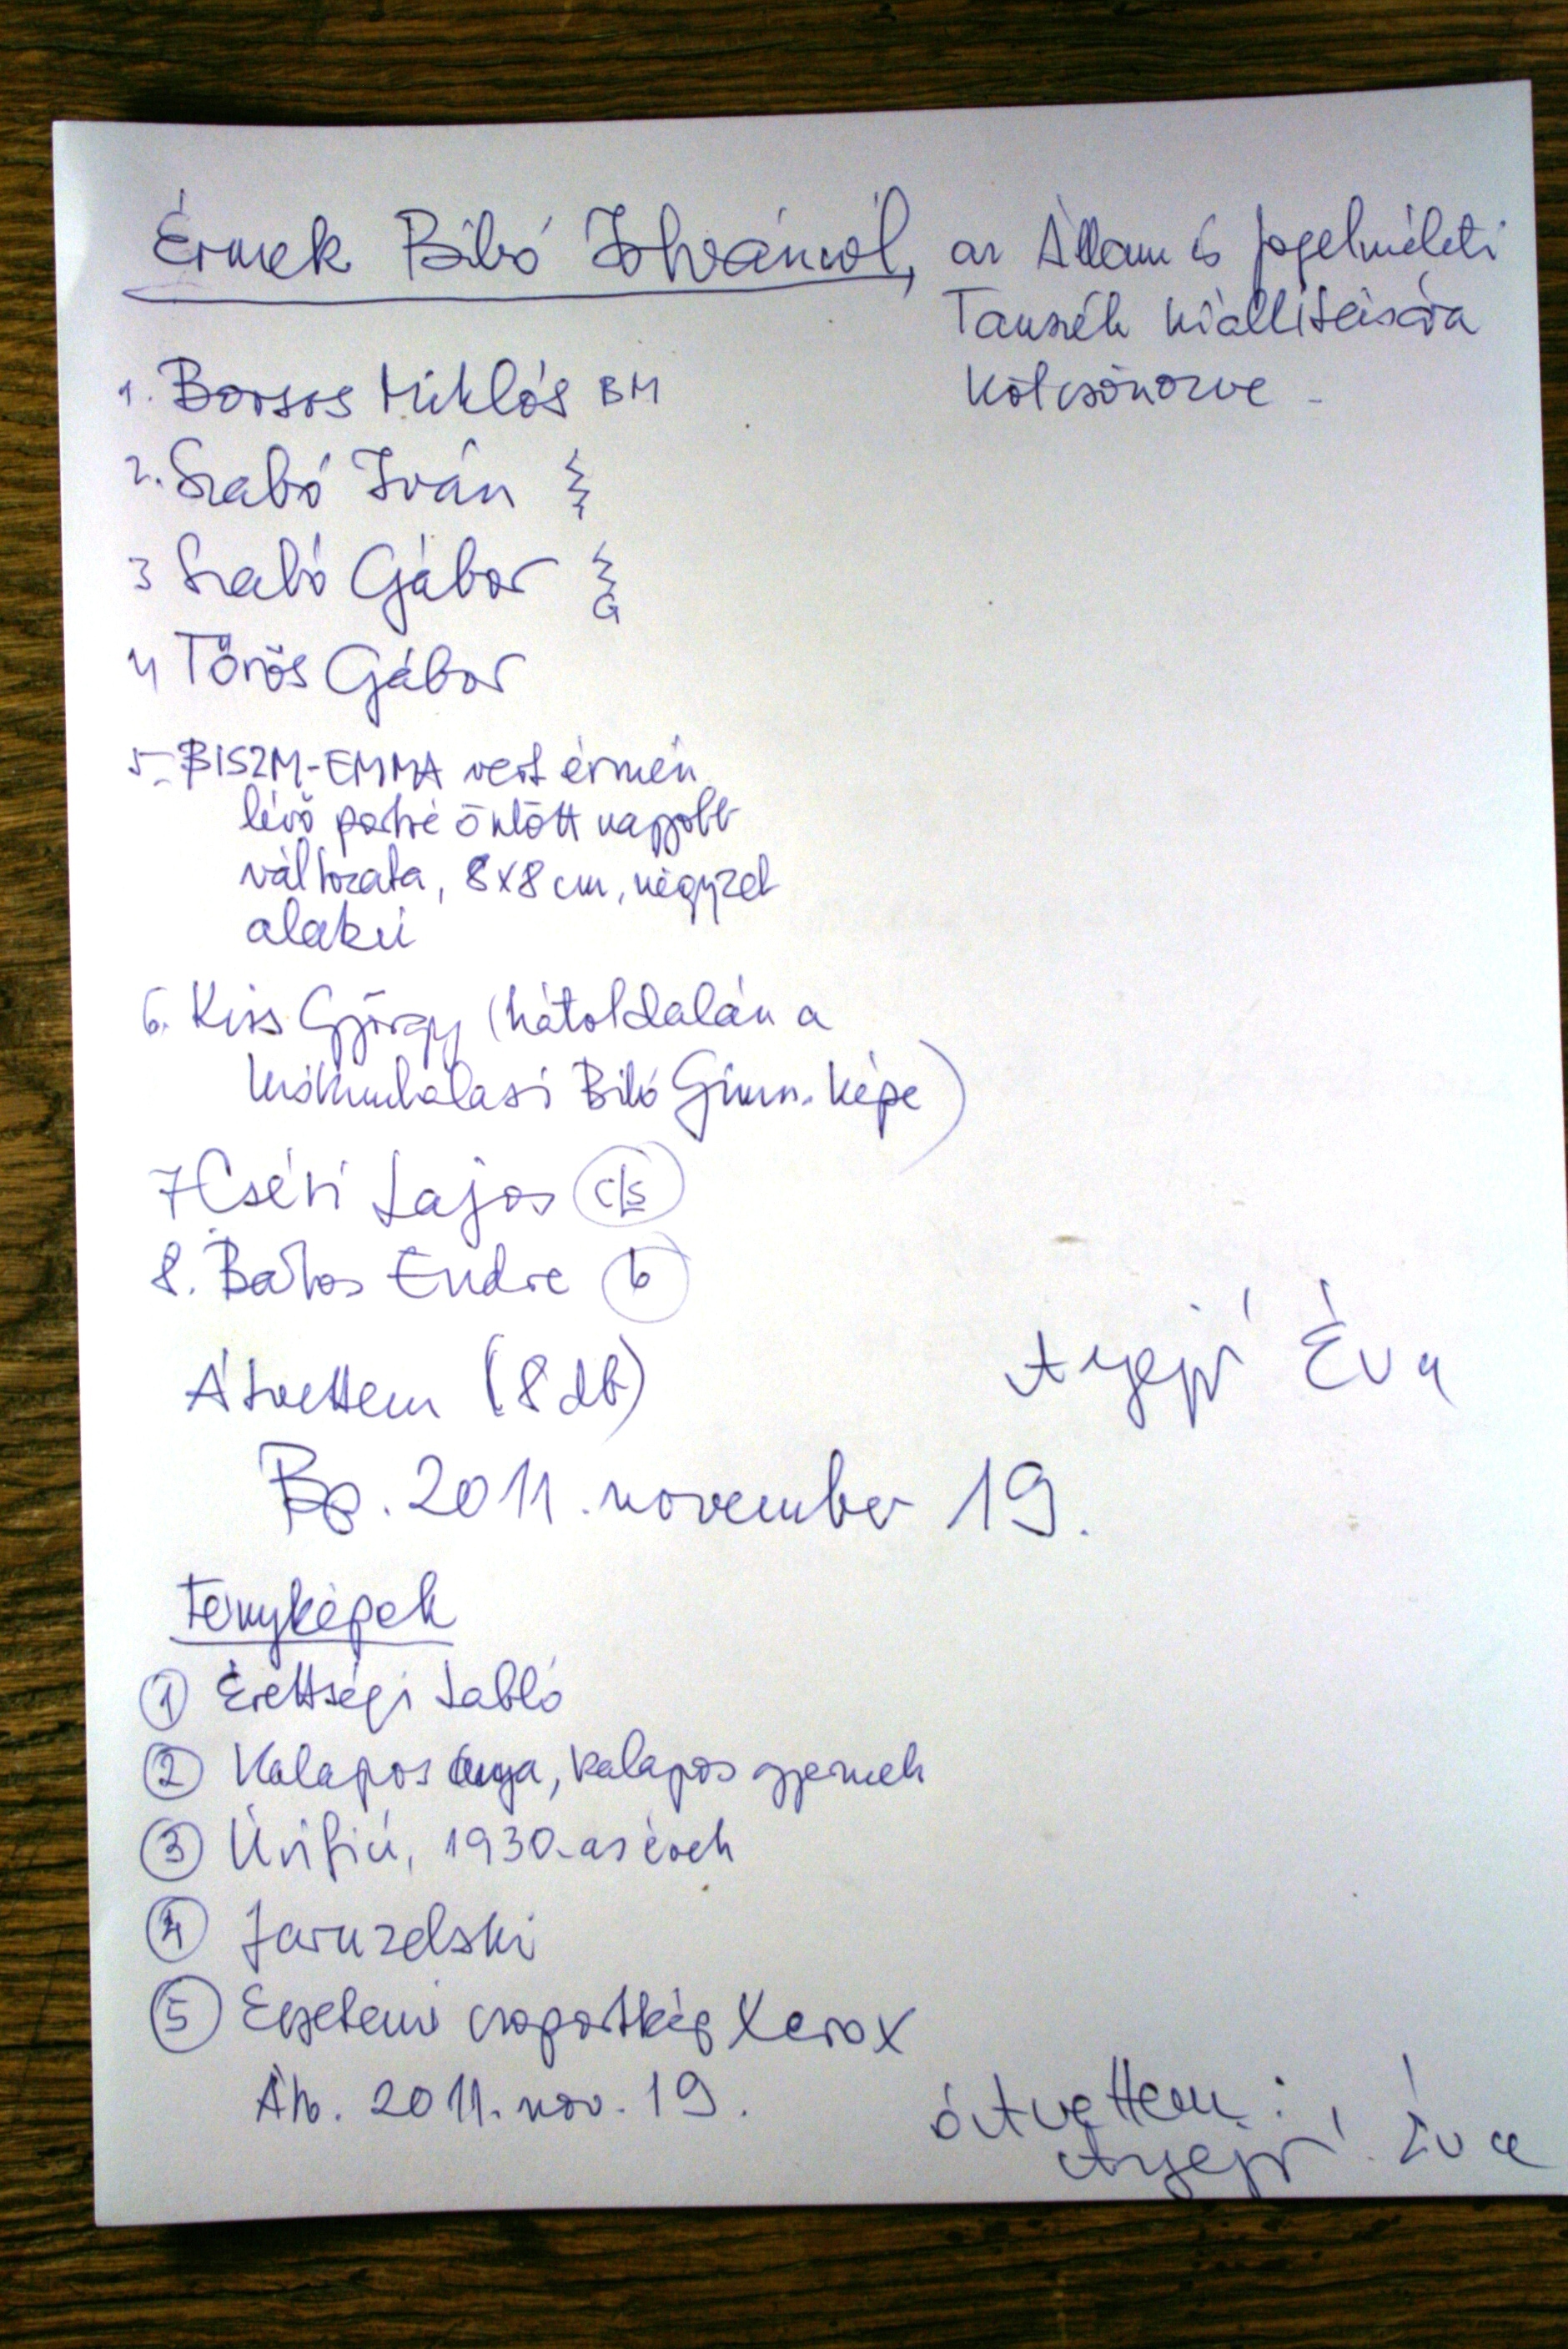 Érmek Bibó Istvánról, az Állam és Jogelméleti
Tanszék kiállítására
kölcsönözve -
1. Borsos Miklós BM
2. Szabó Iván
3 Szabó Gábor G
4 Törös Gábor
5. BISZM-EMMA vert érmén
lévő portré öntött nagyobb
változata, 8x8 cm, négyzet
alakú
6. Kiss György (hátoldalán a
kiskunhalasi Bibó Gimn. képe)
7 Cséri Lajos csL
8. Bartos Endre b
Átvettem (8 db) Éva
Bp. 2011. november 19.
Fényképek
1 Érettségi tabló
2 Kalapos anya, kalapos gyermek
3 Úrifiú, 1930-as évek
4 Jaruzelski
5 Egyetemi csoportkép Xerox
2011. nov. 19. átvettem:
Éva